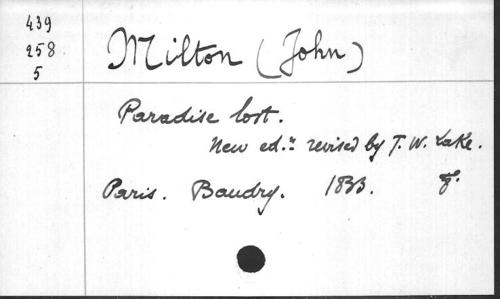 439
258
5
Milton (John)
Paradise lost.
New ed.n revised by T. W. Lake.
Paris. Baudry. 1833.